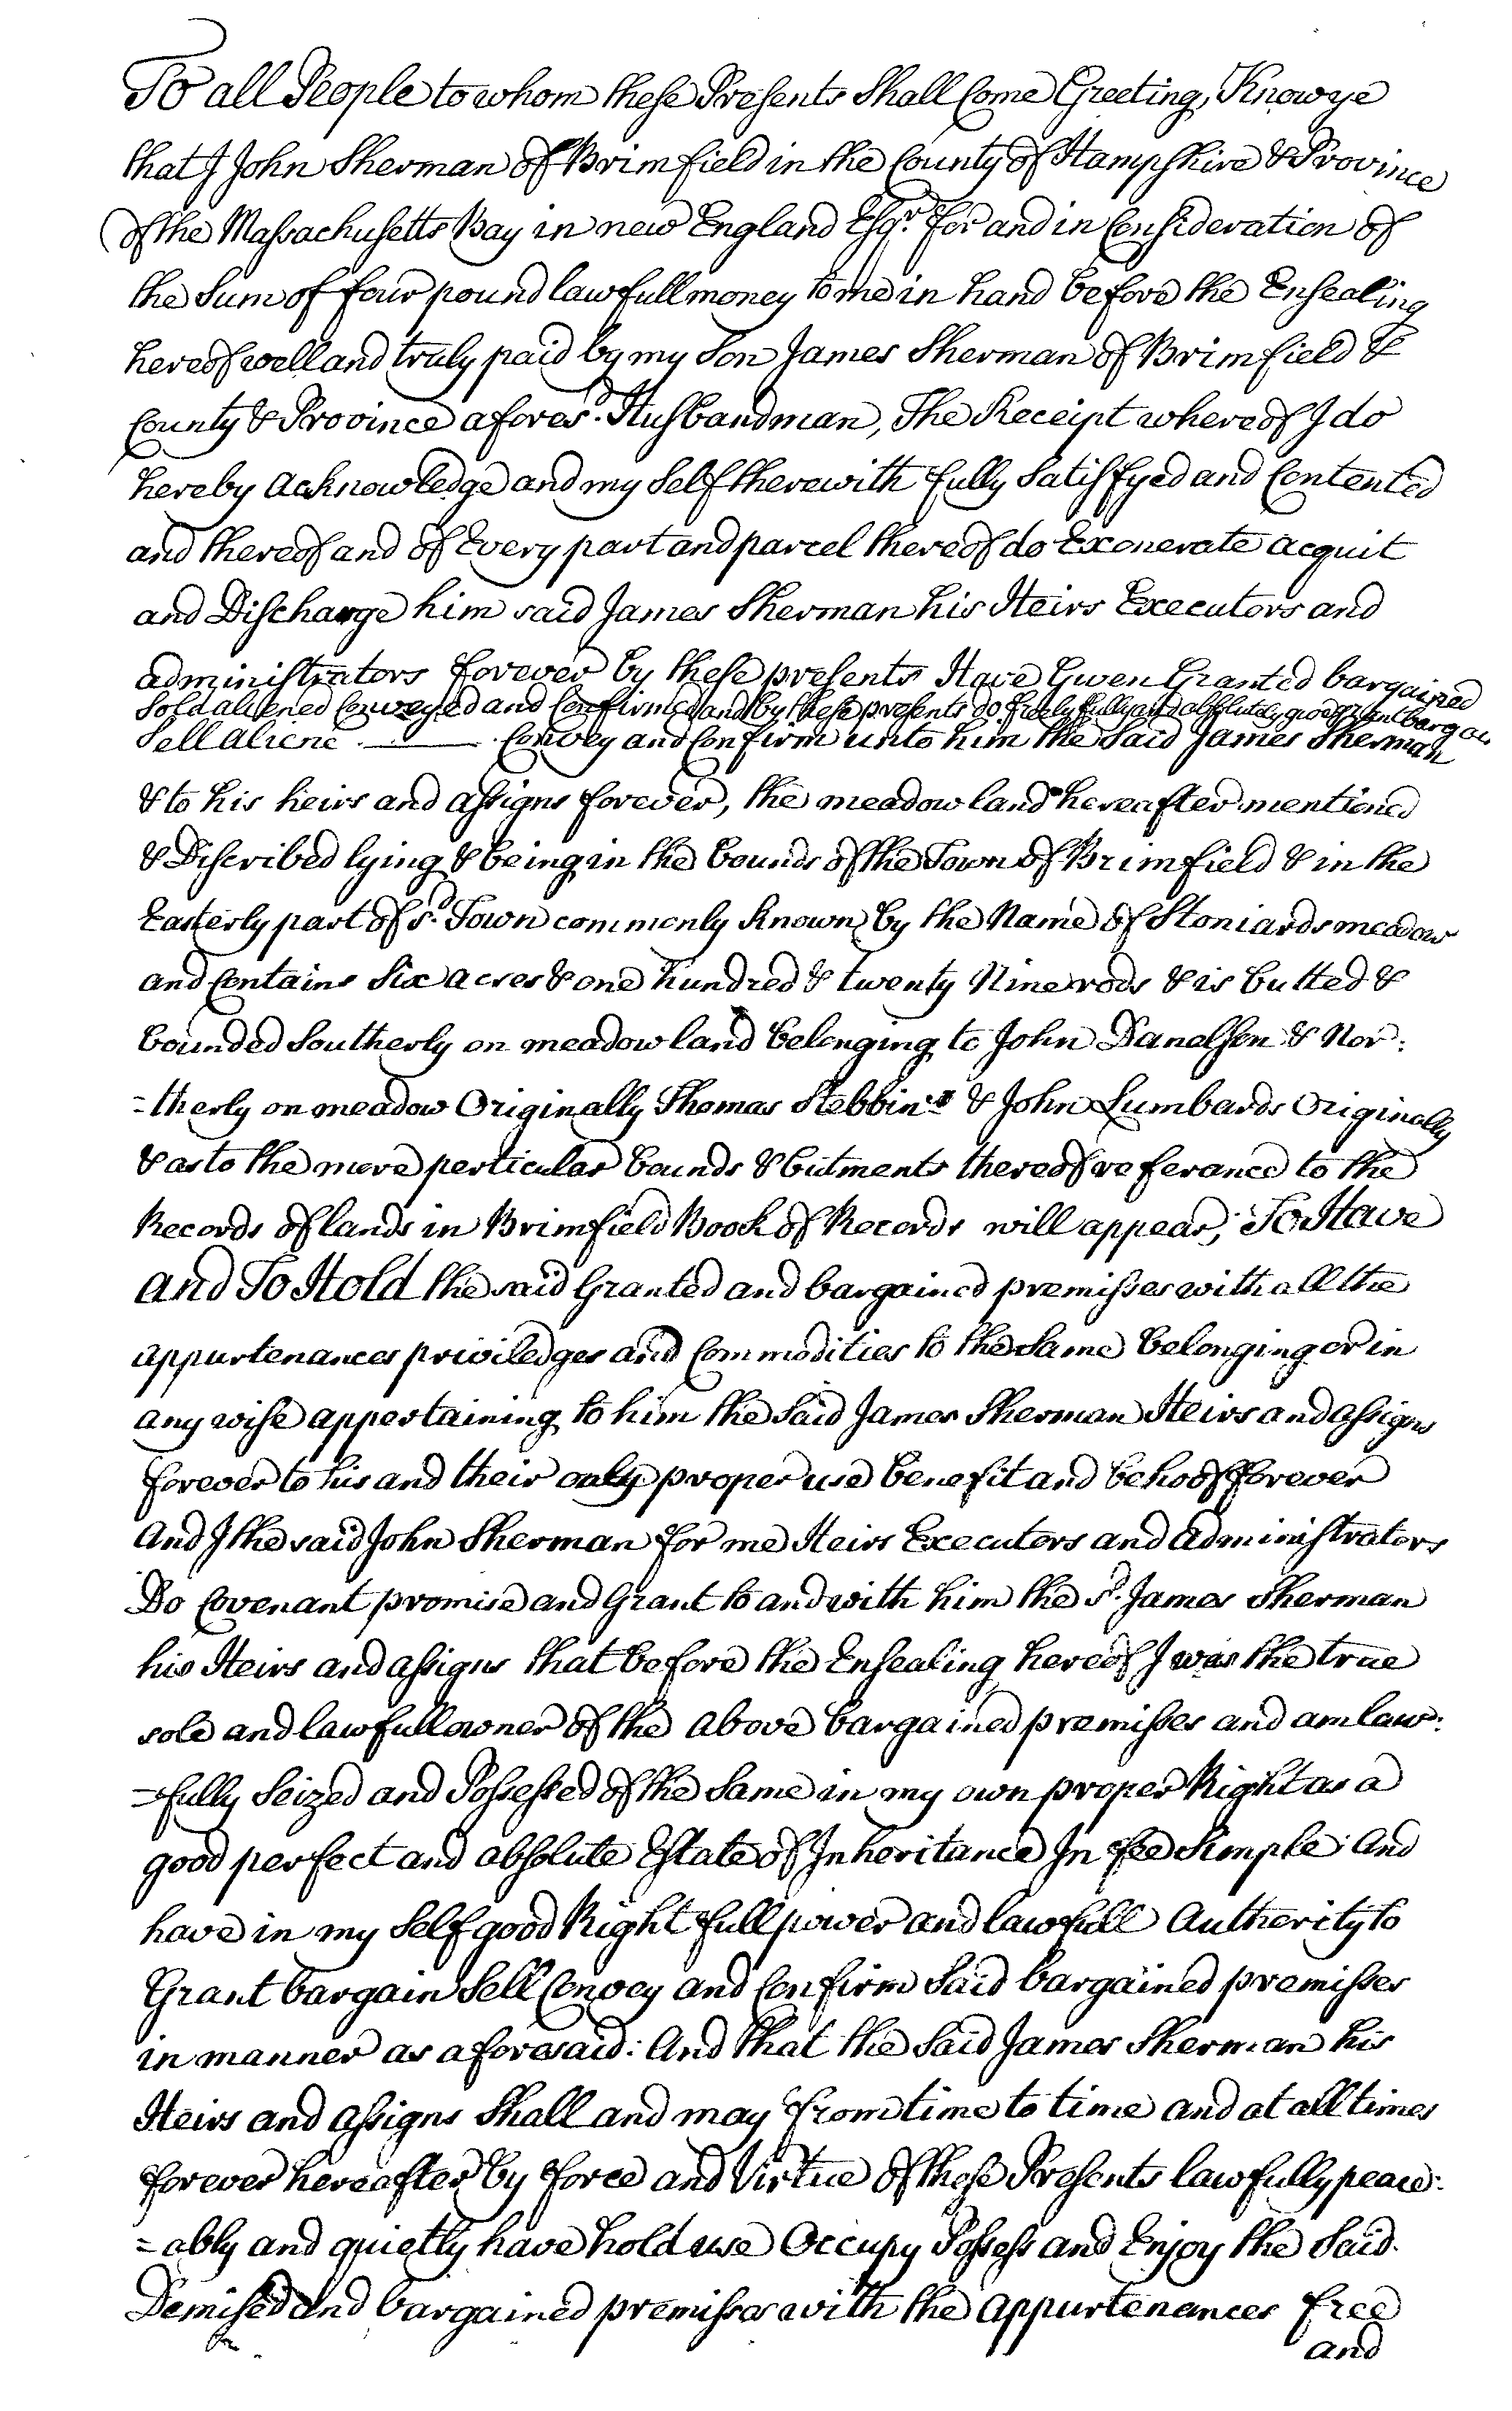 To all People to whom these Presents Shall Come Greeting, Know ye
that I John Sherman of Brimfield in the County of Hampshire & Province
of the Massachusetts Bay in new England Esqr. for and in Consideration of
the Sum of four pound lawfull money to me in hand before the Ensealing
hereof well and truly paid by my Son James Sherman of Brimfield &
County & Province afores.d Husbandman, The Receipt whereof I do
hereby acknowledge and my Self therewith fully Satisfyed and Contented
and thereof and of Every part and parcel thereof do Exonerate acquit
and Discharge him said James Sherman his Heirs Executors and
administrators forever by these presents Have Given Granted bargained
Sold aliened Conveyed and Confirmed and by these presents do freely fully and absolutely give grant bargain
Sell aliene . —— . Convey and Confirm unto him the Said James Sherman
& to his heirs and assigns forever, the meadow land hereafter mentioned
& Discribed lying & being in the bounds of the Town of Brimfield & in the
Easterly part of s.d Town commonly known by the Name of Stoniards meadow
and Contains Six acres & one hundred & twenty Nine rods & is butted &
bounded Southerly on meadow land belonging to John Danelson & Nor:
=therly on meadow Originally Thomas Stebbins & John Lumbards Originally
& as to the more perticular bounds & butments thereof referance to the
Records of lands in Brimfield Book of Records will appear; To Have
and To Hold the said Granted and bargained premisses with all the
appurtenances priviledges and Commodities to the Same belonging or in
any wise appertaining to him the Said James Sherman Heirs and assigns
forever to his and their only proper use benefit and behoof forever
And I the said John Sherman for me Heirs Executors and administrators
Do Covenant promise and Grant to and with him the s.d James Sherman
his Heirs and assigns that before the Ensealing hereof I was the true
sole and lawfull owner of the above bargained premisses and am law:
=fully Seized and Possessed of the Same in my own proper Right as a
good perfect and absolute Estate of Inheritance In fee Simple: And
have in my Self good Right full power and lawfull Authority to
Grant bargain Sell Convey and Confirm Said bargained premisses
in manner as aforesaid: And that the Said James Sherman his
Heirs and assigns Shall and may from time to time and at all times
forever hereafter by force and Virtue of these Presents lawfully peace:
=ably and quietly have hold use Occupy Possess and Enjoy the Said
Demised and bargained premisses with the appurtenances free
and